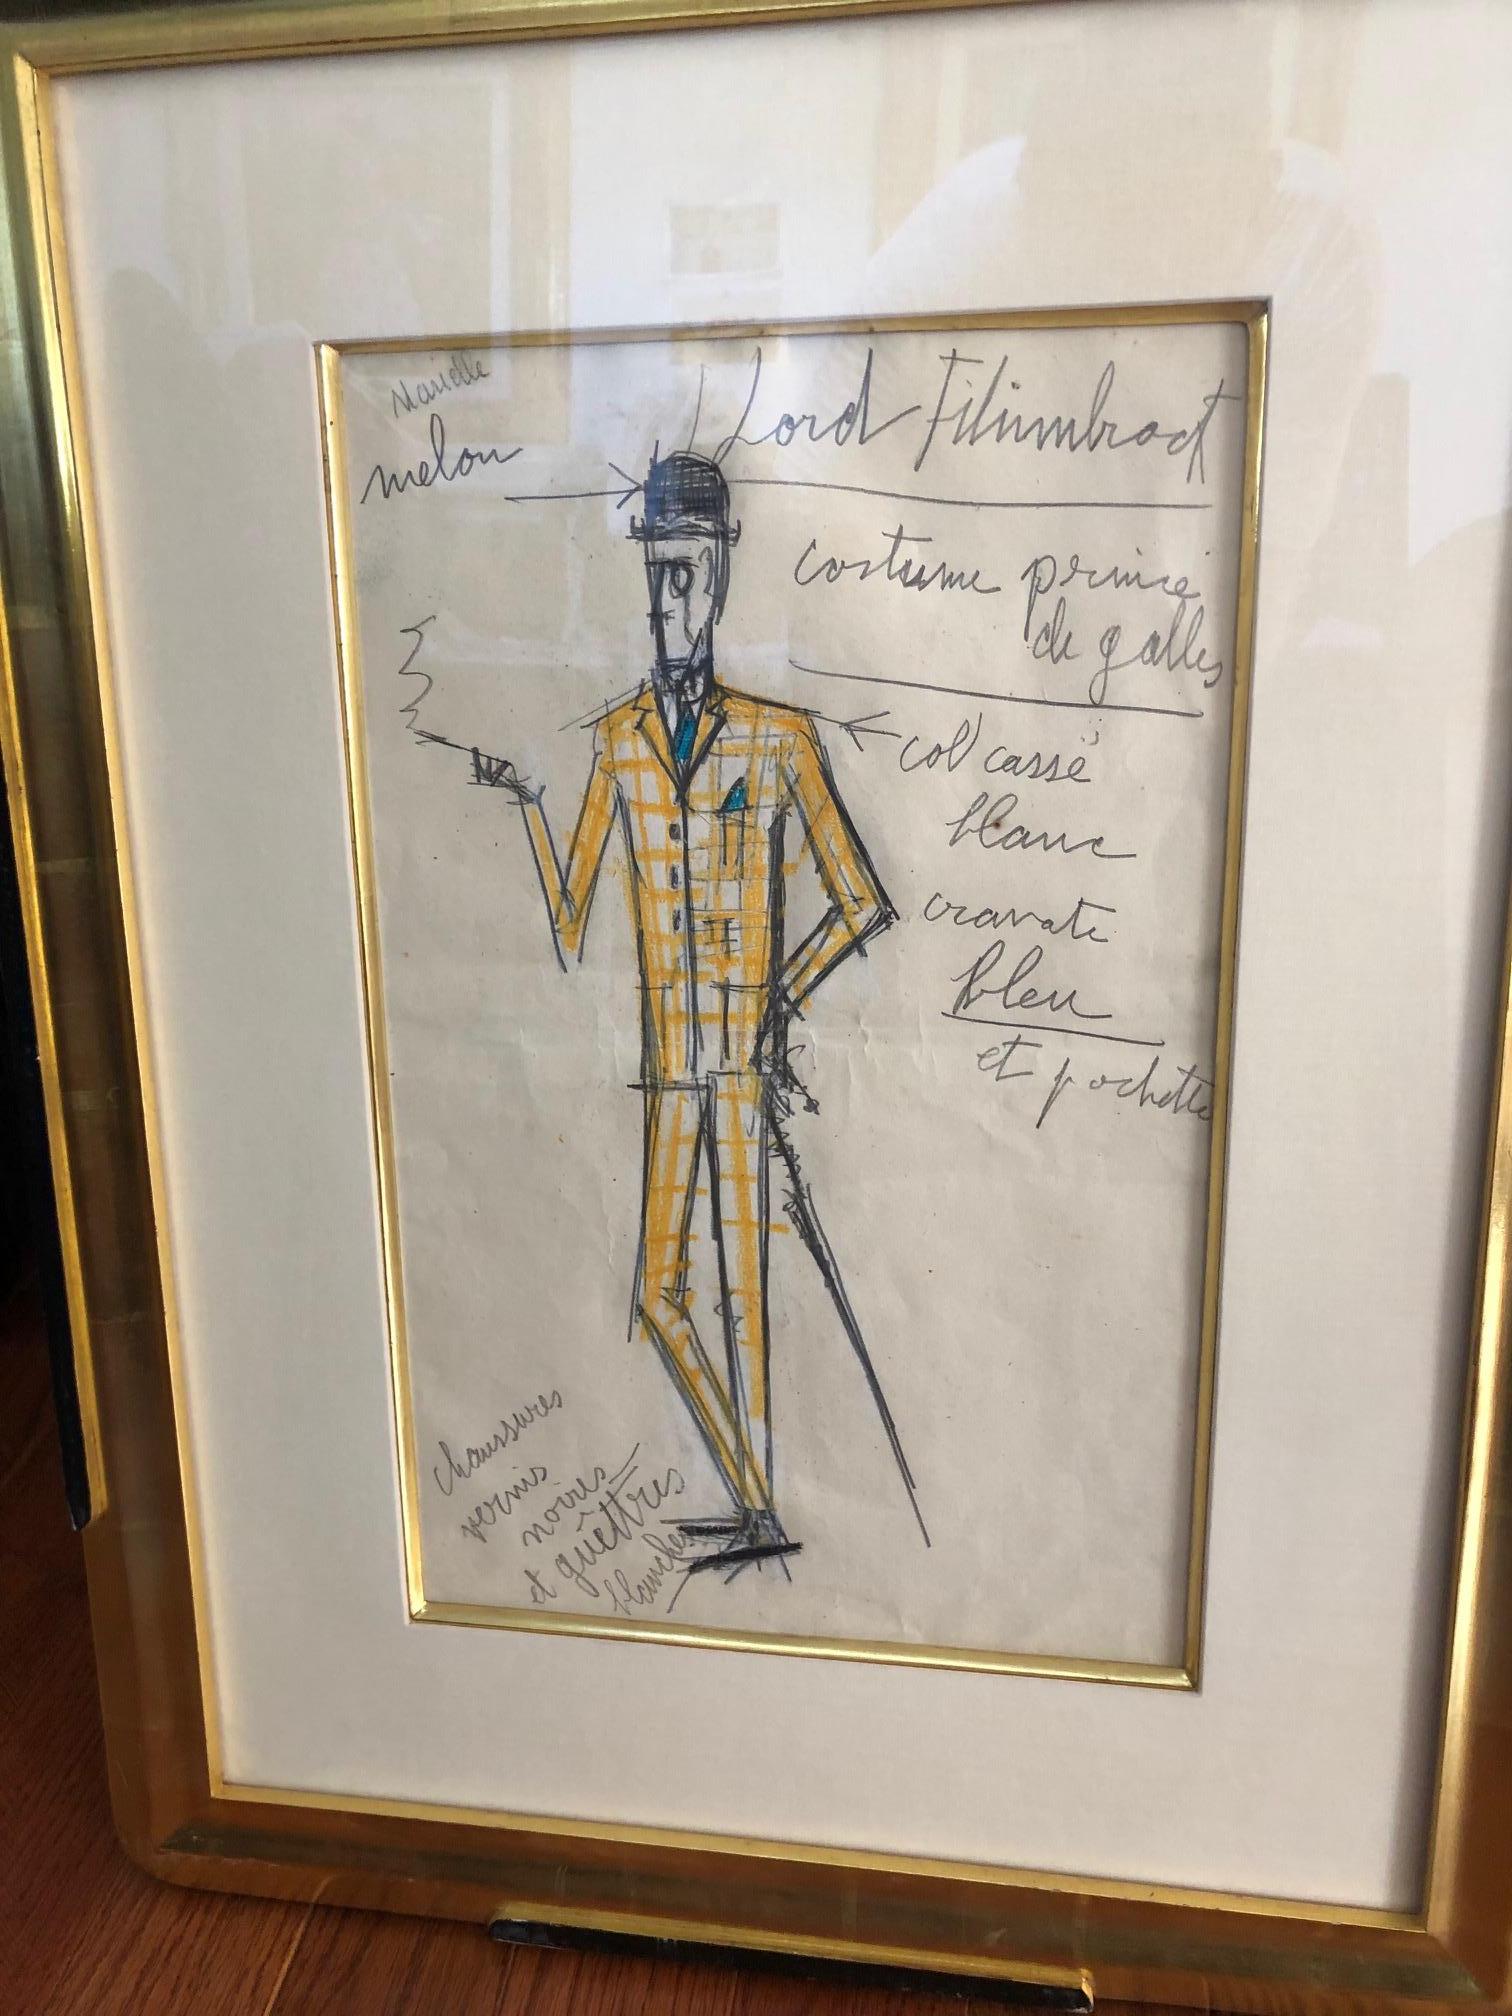 Marielle
melon
Lord Filimbroct
costume prince
de galles
col cassé
blanc
cravate
bleu
et pochette
chaussures
vernis
noires
et guêttres
blanches